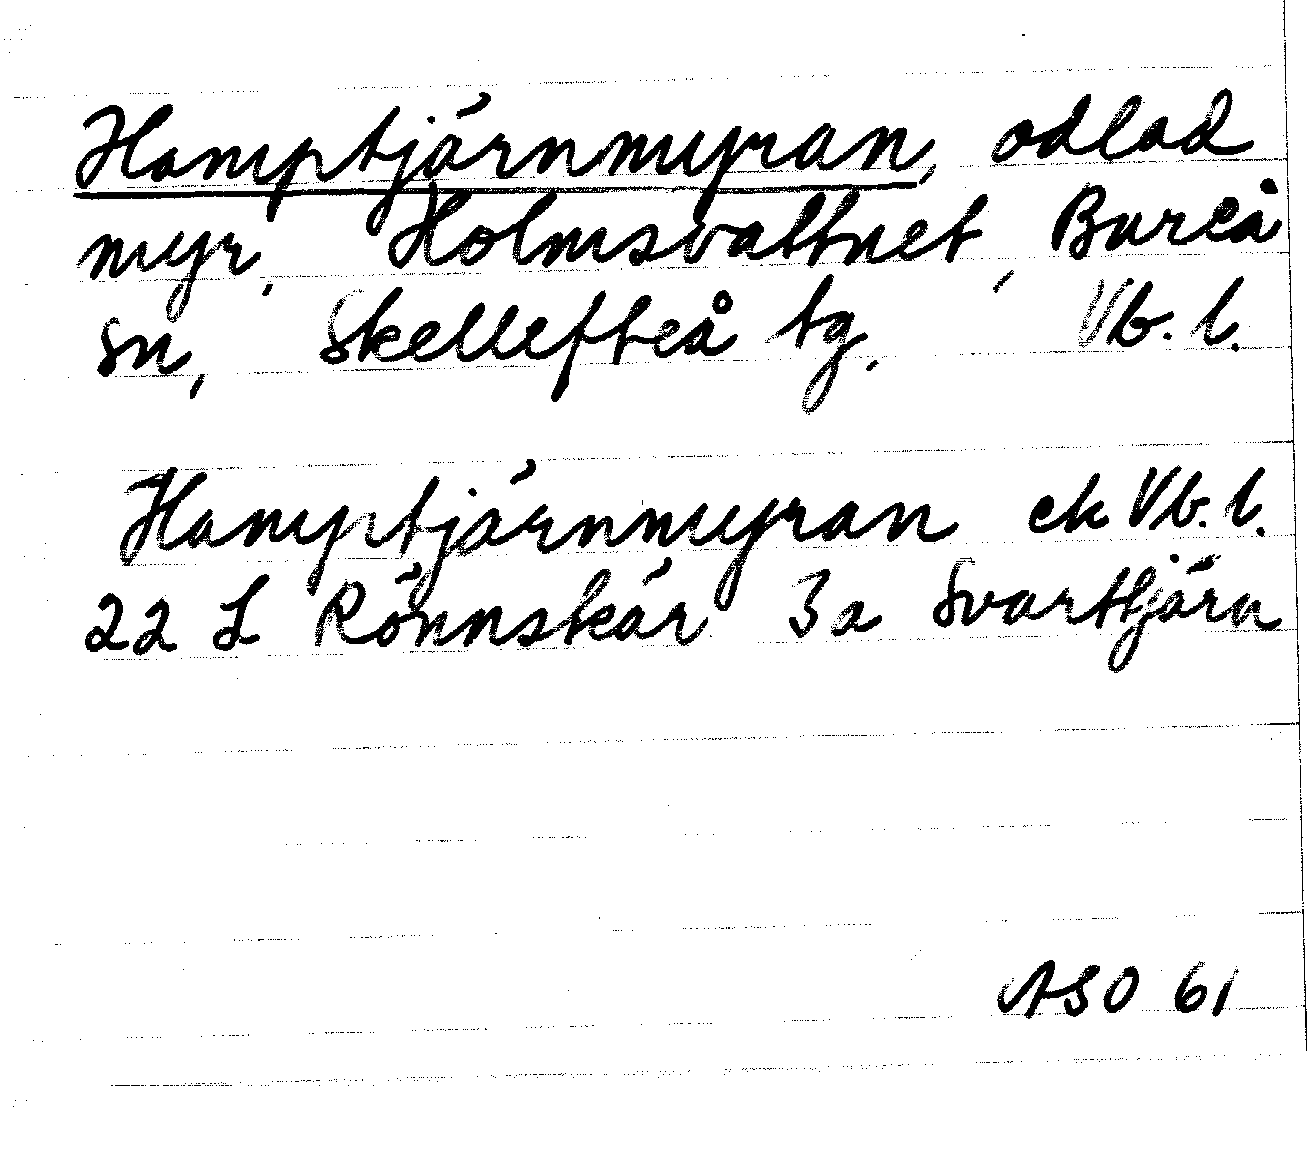 Hamptjärnmyran, odlad
myr, Holmsvattnet, Bureå
sn, Skellefteå tg. Vb. l.
Hamptjärnmyran ek Vb. l.
22 L Rönnskär 3a Svarttjärn
ASO 61